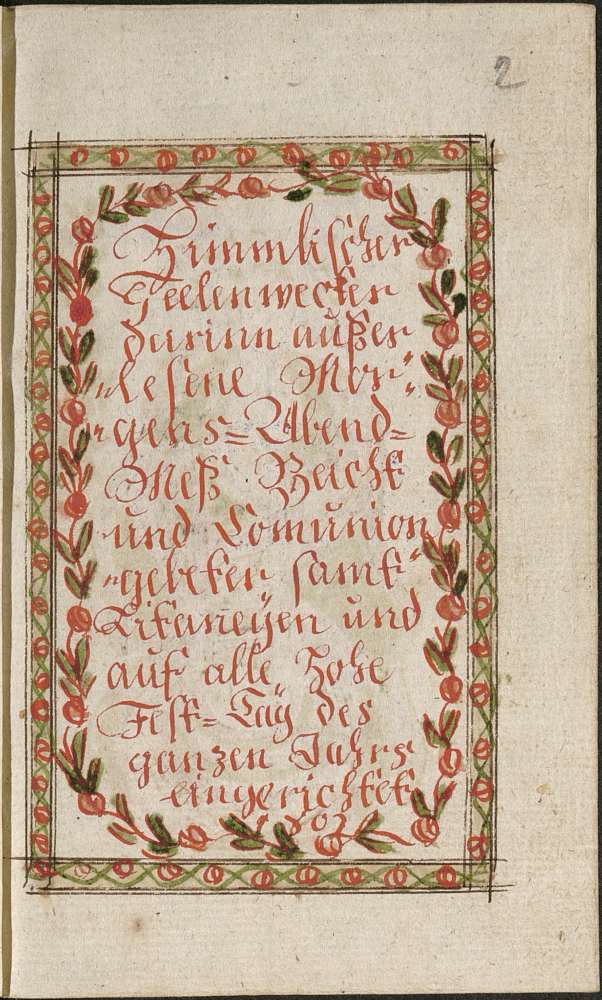 2
Himmlischer
Seelenwecker
darinn außer
"lesene Mor":
"gens=Abend=
Meß Beicht
und Comunion
"gebeter samt
Litaneÿen und
auf alle Hohe
Fest=Tag des
ganzen Jahrs
eingerichtet
1803